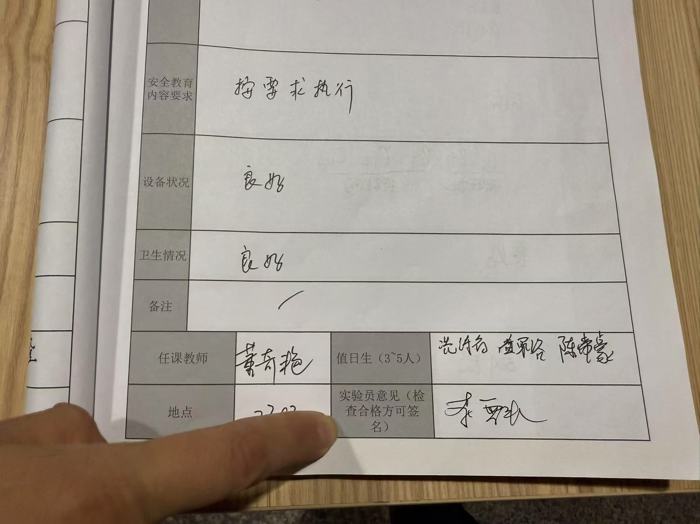 安全教育
内容要求
按要求执行
设备状况
良好
卫生情况
良好
备注
任课教师
黄奇艳
值日生（3~5人）
陈帝豪
地点
实验员意见（检
查合格方可签
名）